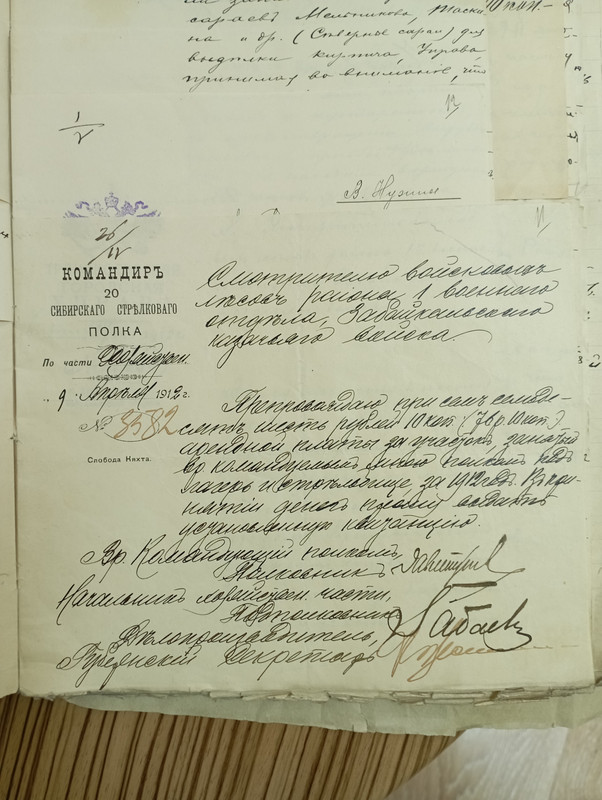 сараевъ Мельникова,
на и др. (Северные сараи) для
выделки кирпича, Управа,
принимая во внимание, что
КОМАНДИРЪ
20
СИБИРСКАГО СТРѢЛКОВАГО
ПОЛКА
По части
9 Апрѣля 1912 г.
№ 3582
Слобода Кяхта.
Смотрителю войсковыхъ
лѣсовъ района 1 военнаго
отдѣла, Забайкальскаго
казачьяго войска.
Препровождаю при семъ семьде-
сятъ шесть рублей 10 коп. (76 р. 10 коп.)
арендной платы за участокъ, занятый
командуемымъ мною полкомъ подъ
лагерь и стрѣльбище за 1912 годъ. Въ при-
нятіи денегъ прошу выдать
установленную квитанцію.
Вр. Командующій полкомъ,
Полковникъ
Начальникъ хозяйствен. части,
Подполковникъ
Дѣлопроизводитель,
Губернскій Секретарь